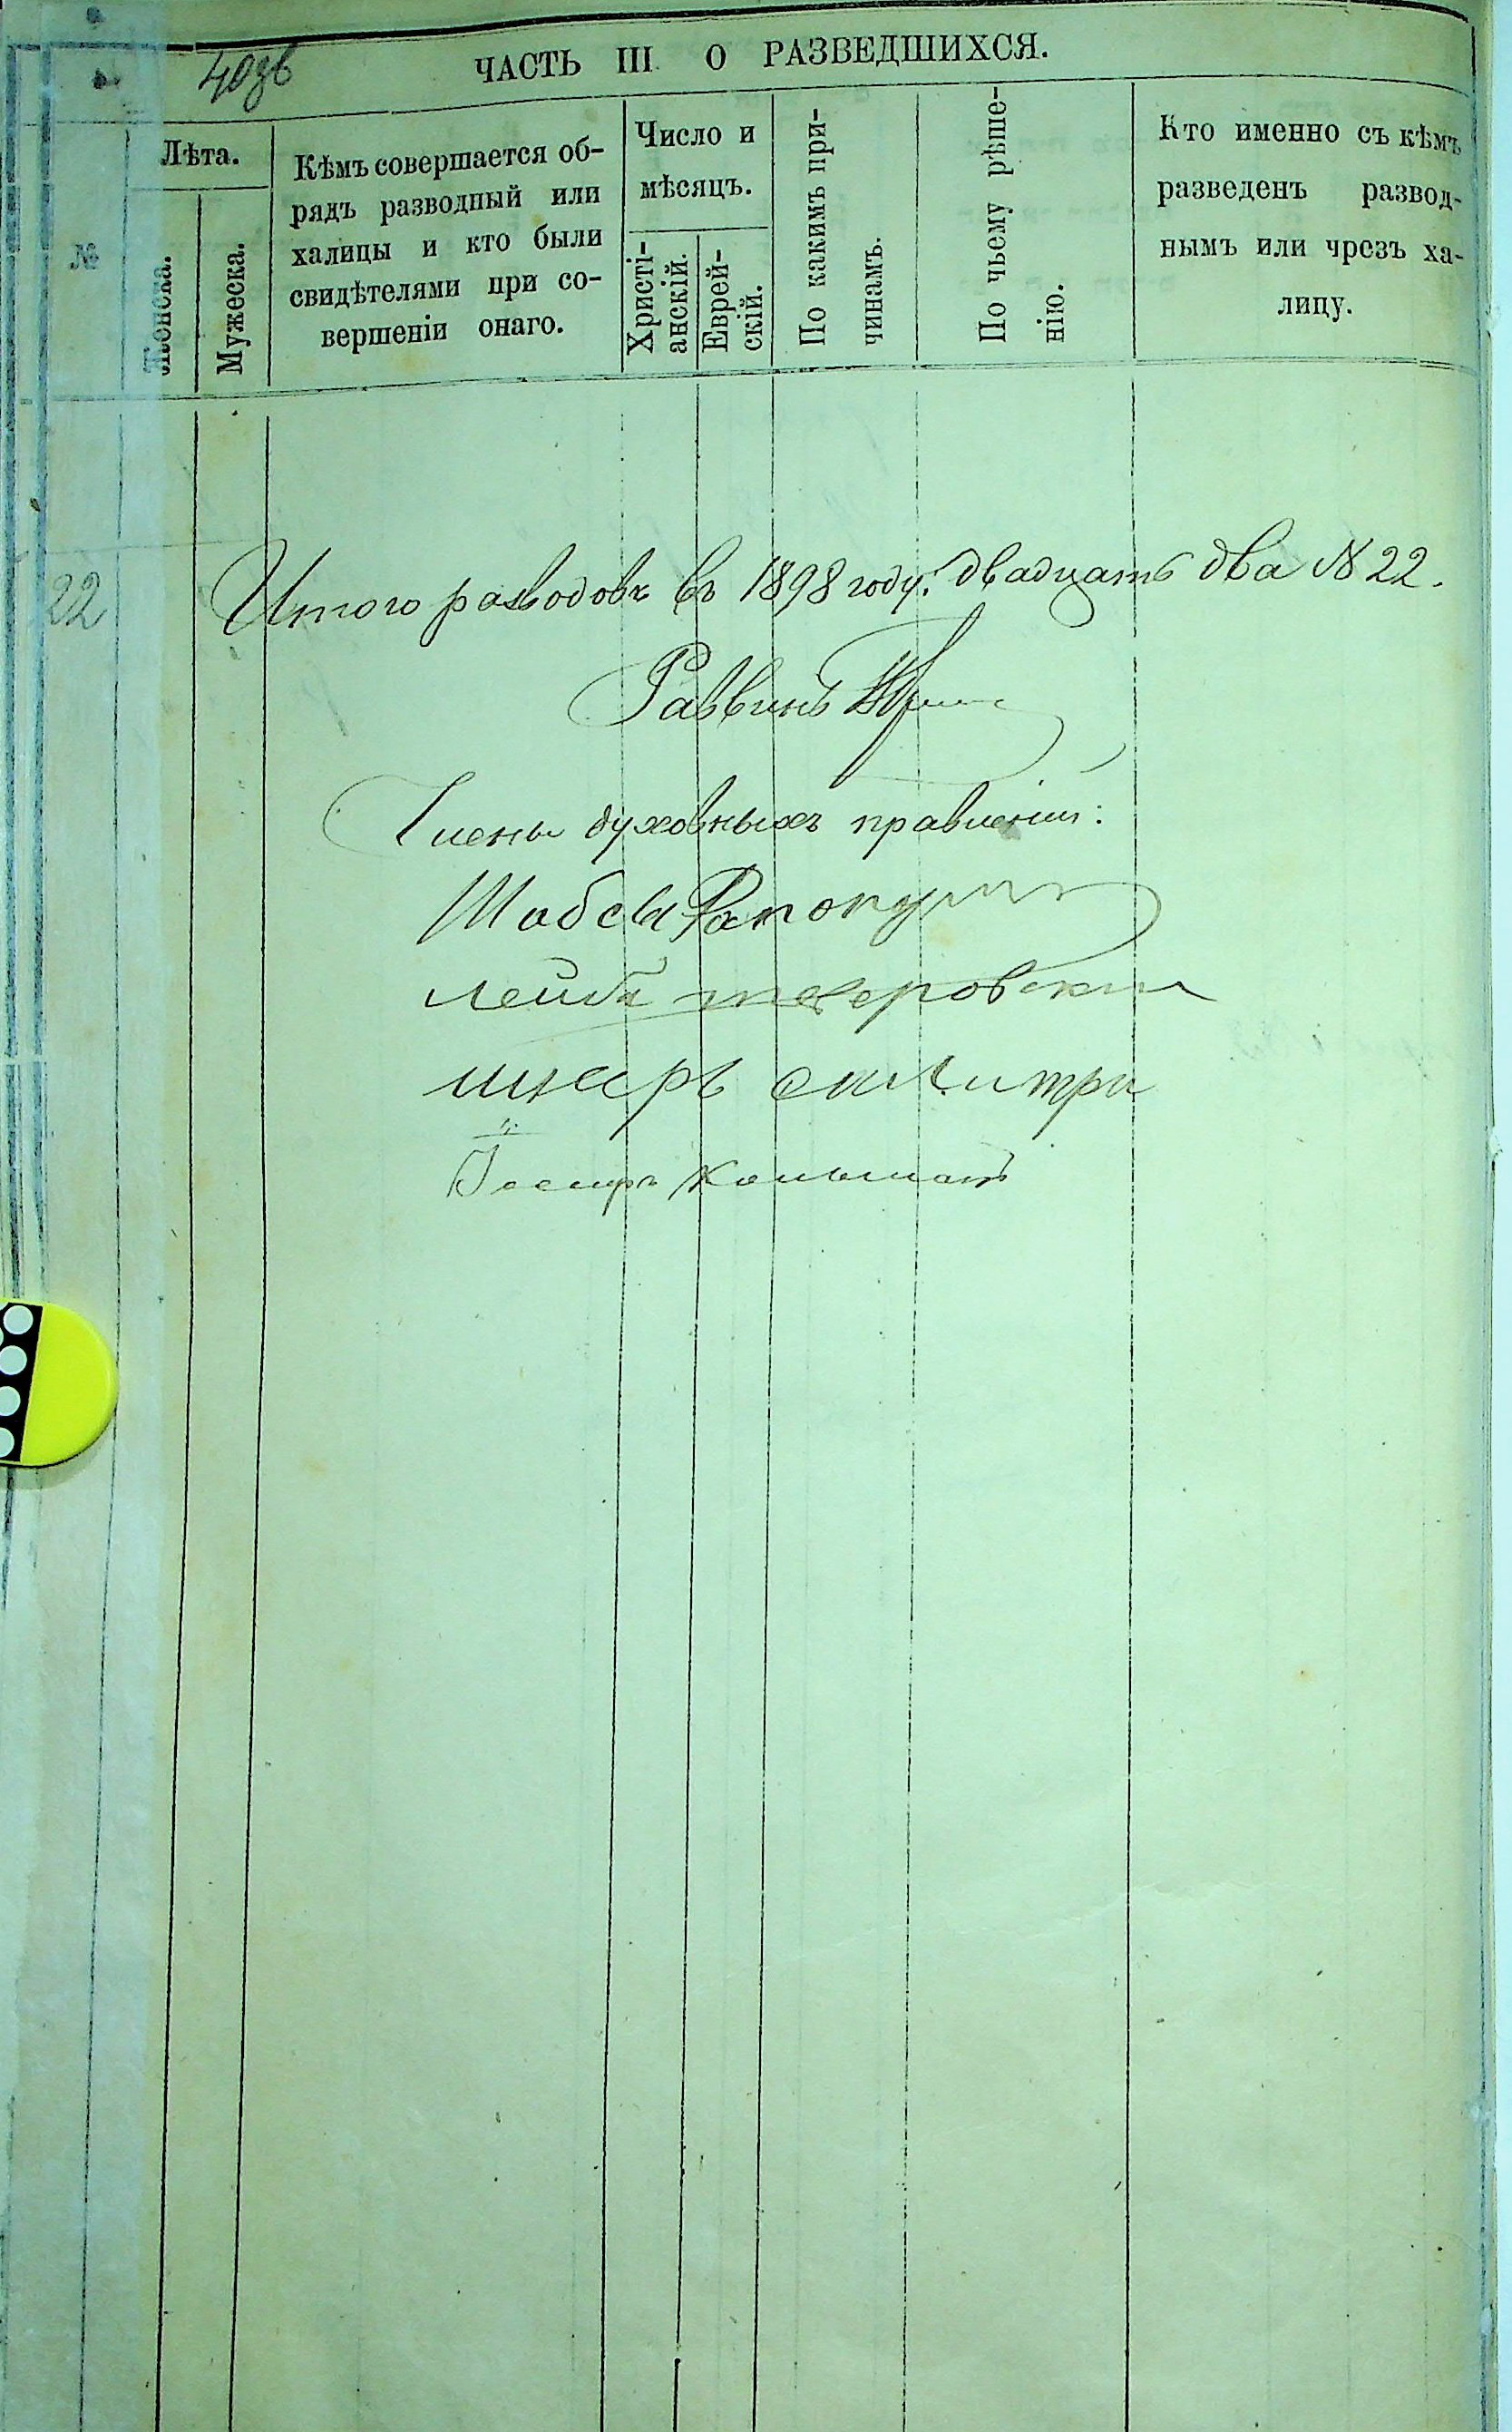 40зв
ЧАСТЬ III О РАЗВЕДШИХСЯ.
№
Лѣта.
Женска.
Мужеска.
Кѣмъ совершается об-
рядъ разводный или
халицы и кто были
свидѣтелями при со-
вершеніи онаго.
Число и
мѣсяцъ.
Христі-
анскій.
Еврей-
скій.
По какимъ при-
чинамъ.
По чьему рѣше-
нію.
Кто именно съ кѣмъ
разведенъ развод-
нымъ или чрезъ ха-
лицу.
22
Итого разводовъ въ 1898 году: двадцать два № 22.
Раввинъ
Члены духовныхъ правленій:
Шабса
Лейба